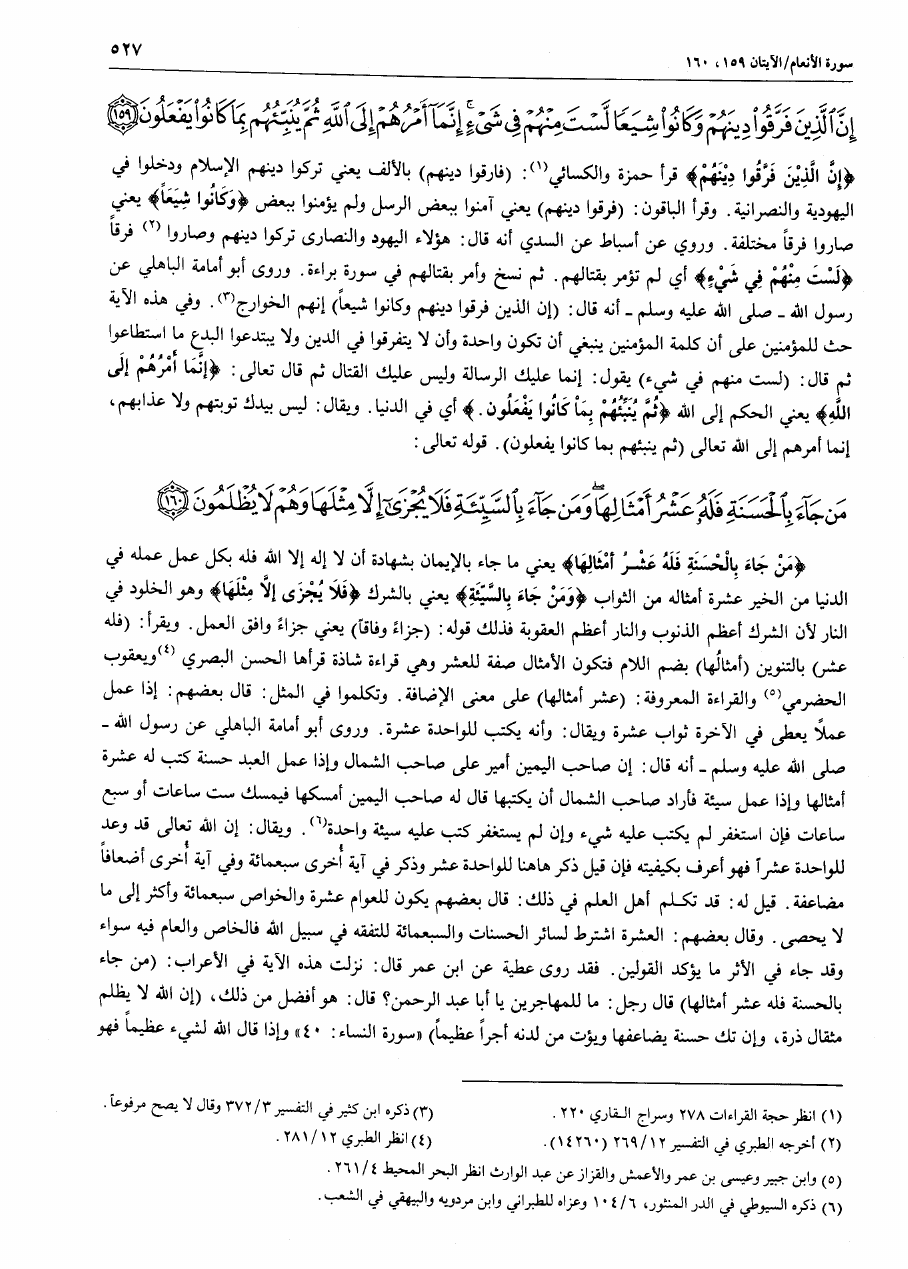 سورة الأنعام/الآيتان ١٥٩، ١٦٠
٥٢٧
إِنَّ ٱلَّذِينَ فَرَّقُوا۟ دِينَهُمْ وَكَانُوا۟ شِيَعًا لَّسْتَ مِنْهُمْ فِى شَىْءٍ ۚ إِنَّمَآ أَمْرُهُمْ إِلَى ٱللَّهِ ثُمَّ يُنَبِّئُهُم بِمَا كَانُوا۟ يَفْعَلُونَ ﴿١٥٩﴾
﴿إِنَّ الَّذِيْنَ فَرَّقُوا دِيْنَهُمْ﴾ قرأ حمزة والكسائي(١): (فارقوا دينهم) بالألف يعني تركوا دينهم الإسلام ودخلوا في
اليهودية والنصرانية. وقرأ الباقون: (فرقوا دينهم) يعني آمنوا ببعض الرسل ولم يؤمنوا ببعض ﴿وَكَانُوا شِيَعاً﴾ يعني
صاروا فرقاً مختلفة. وروي عن أسباط عن السدي أنه قال: هؤلاء اليهود والنصارى تركوا دينهم وصاروا (٢) فرقاً
﴿لَسْتَ مِنْهُمْ فِي شَيْءٍ﴾ أي لم تؤمر بقتالهم. ثم نسخ وأمر بقتالهم في سورة براءة. وروى أبو أمامة الباهلي عن
رسول الله ـ صلى الله عليه وسلم ـ أنه قال: (إن الذين فرقوا دينهم وكانوا شيعاً) إنهم الخوارج(٣). وفي هذه الآية
حث للمؤمنين على أن كلمة المؤمنين ينبغي أن تكون واحدة وأن لا يتفرقوا في الدين ولا يبتدعوا البدع ما استطاعوا
ثم قال: (لست منهم في شيء) يقول: إنما عليك الرسالة وليس عليك القتال ثم قال تعالى: ﴿إِنَّمَا أَمْرُهُمْ إِلَى
اللَّهِ﴾ يعني الحكم إلى الله ﴿ثُمَّ يُنَبِّئُهُمْ بِمَا كَانُوا يَفْعَلُون.﴾ أي في الدنيا. ويقال: ليس بيدك توبتهم ولا عذابهم،
إنما أمرهم إلى الله تعالى (ثم ينبئهم بما كانوا يفعلون). قوله تعالى:
مَن جَآءَ بِٱلْحَسَنَةِ فَلَهُۥ عَشْرُ أَمْثَالِهَا ۖ وَمَن جَآءَ بِٱلسَّيِّئَةِ فَلَا يُجْزَىٰٓ إِلَّا مِثْلَهَا وَهُمْ لَا يُظْلَمُونَ ﴿١٦٠﴾
﴿مَنْ جَاءَ بِالْحَسَنَةِ فَلَهُ عَشْرُ أمْثَالِهَا﴾ يعني ما جاء بالإيمان بشهادة أن لا إله إلا الله فله بكل عمل عمله في
الدنيا من الخير عشرة أمثاله من الثواب ﴿وَمَنْ جَاءَ بِالسَّيِّئَةِ﴾ يعني بالشرك ﴿فَلَا يُجْزَى إلاَّ مِثْلَهَا﴾ وهو الخلود في
النار لأن الشرك أعظم الذنوب والنار أعظم العقوبة فذلك قوله: (جزاءً وفاقاً) يعني جزاءً وافق العمل. ويقرأ: (فله
عشر) بالتنوين (أمثالُها) بضم اللام فتكون الأمثال صفة للعشر وهي قراءة شاذة قرأها الحسن البصري (٤)ويعقوب
الحضرمي(٥) والقراءة المعروفة: (عشر أمثالها) على معنى الإضافة. وتكلموا في المثل: قال بعضهم: إذا عمل
عملاً يعطى في الآخرة ثواب عشرة ويقال: وأنه يكتب للواحدة عشرة. وروى أبو أمامة الباهلي عن رسول الله ـ
صلى الله عليه وسلم ـ أنه قال: إن صاحب اليمين أمير على صاحب الشمال وإذا عمل العبد حسنة كتب له عشرة
أمثالها وإذا عمل سيئة فأراد صاحب الشمال أن يكتبها قال له صاحب اليمين أمسكها فيمسك ست ساعات أو سبع
ساعات فإن استغفر لم يكتب عليه شيء وإن لم يستغفر كتب عليه سيئة واحدة(٦). ويقال: إن الله تعالى قد وعد
للواحدة عشراً فهو أعرف بكيفيته فإن قيل ذكر هاهنا للواحدة عشر وذكر في آية أُخرى سبعمائة وفي آية أُخرى أضعافاً
مضاعفة. قيل له: قد تكلم أهل العلم في ذلك: قال بعضهم يكون للعوام عشرة والخواص سبعمائة وأكثر إلى ما
لا يحصى. وقال بعضهم: العشرة اشترط لسائر الحسنات والسبعمائة للتفقه في سبيل الله فالخاص والعام فيه سواء
وقد جاء في الأثر ما يؤكد القولين. فقد روى عطية عن ابن عمر قال: نزلت هذه الآية في الأعراب: (من جاء
بالحسنة فله عشر أمثالها) قال رجل: ما للمهاجرين يا أبا عبد الرحمن؟ قال: هو أفضل من ذلك، (إن الله لا يظلم
مثقال ذرة، وإن تك حسنة يضاعفها ويؤت من لدنه أجراً عظيماً) «سورة النساء: ٤٠» وإذا قال الله لشيء عظيماً فهو
(١) انظر حجة القراءات ٢٧٨ وسراج القاري ٢٢٠.
(٣) ذكره ابن كثير في التفسير ٣٧٢/٣ وقال لا يصح مرفوعاً.
(٢) أخرجه الطبري في التفسير ٢٦٩/١٢ (١٤٢٦٠).
(٤) انظر الطبري ٢٨١/١٢.
(٥) وابن جبير وعيسى بن عمر والأعمش والقزاز عن عبد الوارث انظر البحر المحيط ٢٦١/٤.
(٦) ذكره السيوطي في الدر المنثور، ١٠٤/٦ وعزاه للطبراني وابن مردويه والبيهقي في الشعب.